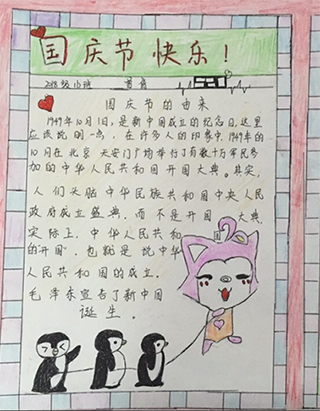 国庆节快乐！
国庆节的由来
1949年10月1日，是新中国成立的纪念日。这里
应该说明一点，在许多人的印象中，1949年的
10月在北京天安门广场举行了有数十万军民参
加的中华人民共和国开国大典。其实，
人们头脑中华民族共和国中央人民
政府成立盛典，而不是开国大典。
实际上，中华人民共和
的"开国"，也就是说中华
人民共和国的成立。
毛泽东宣告了新中国
诞生。